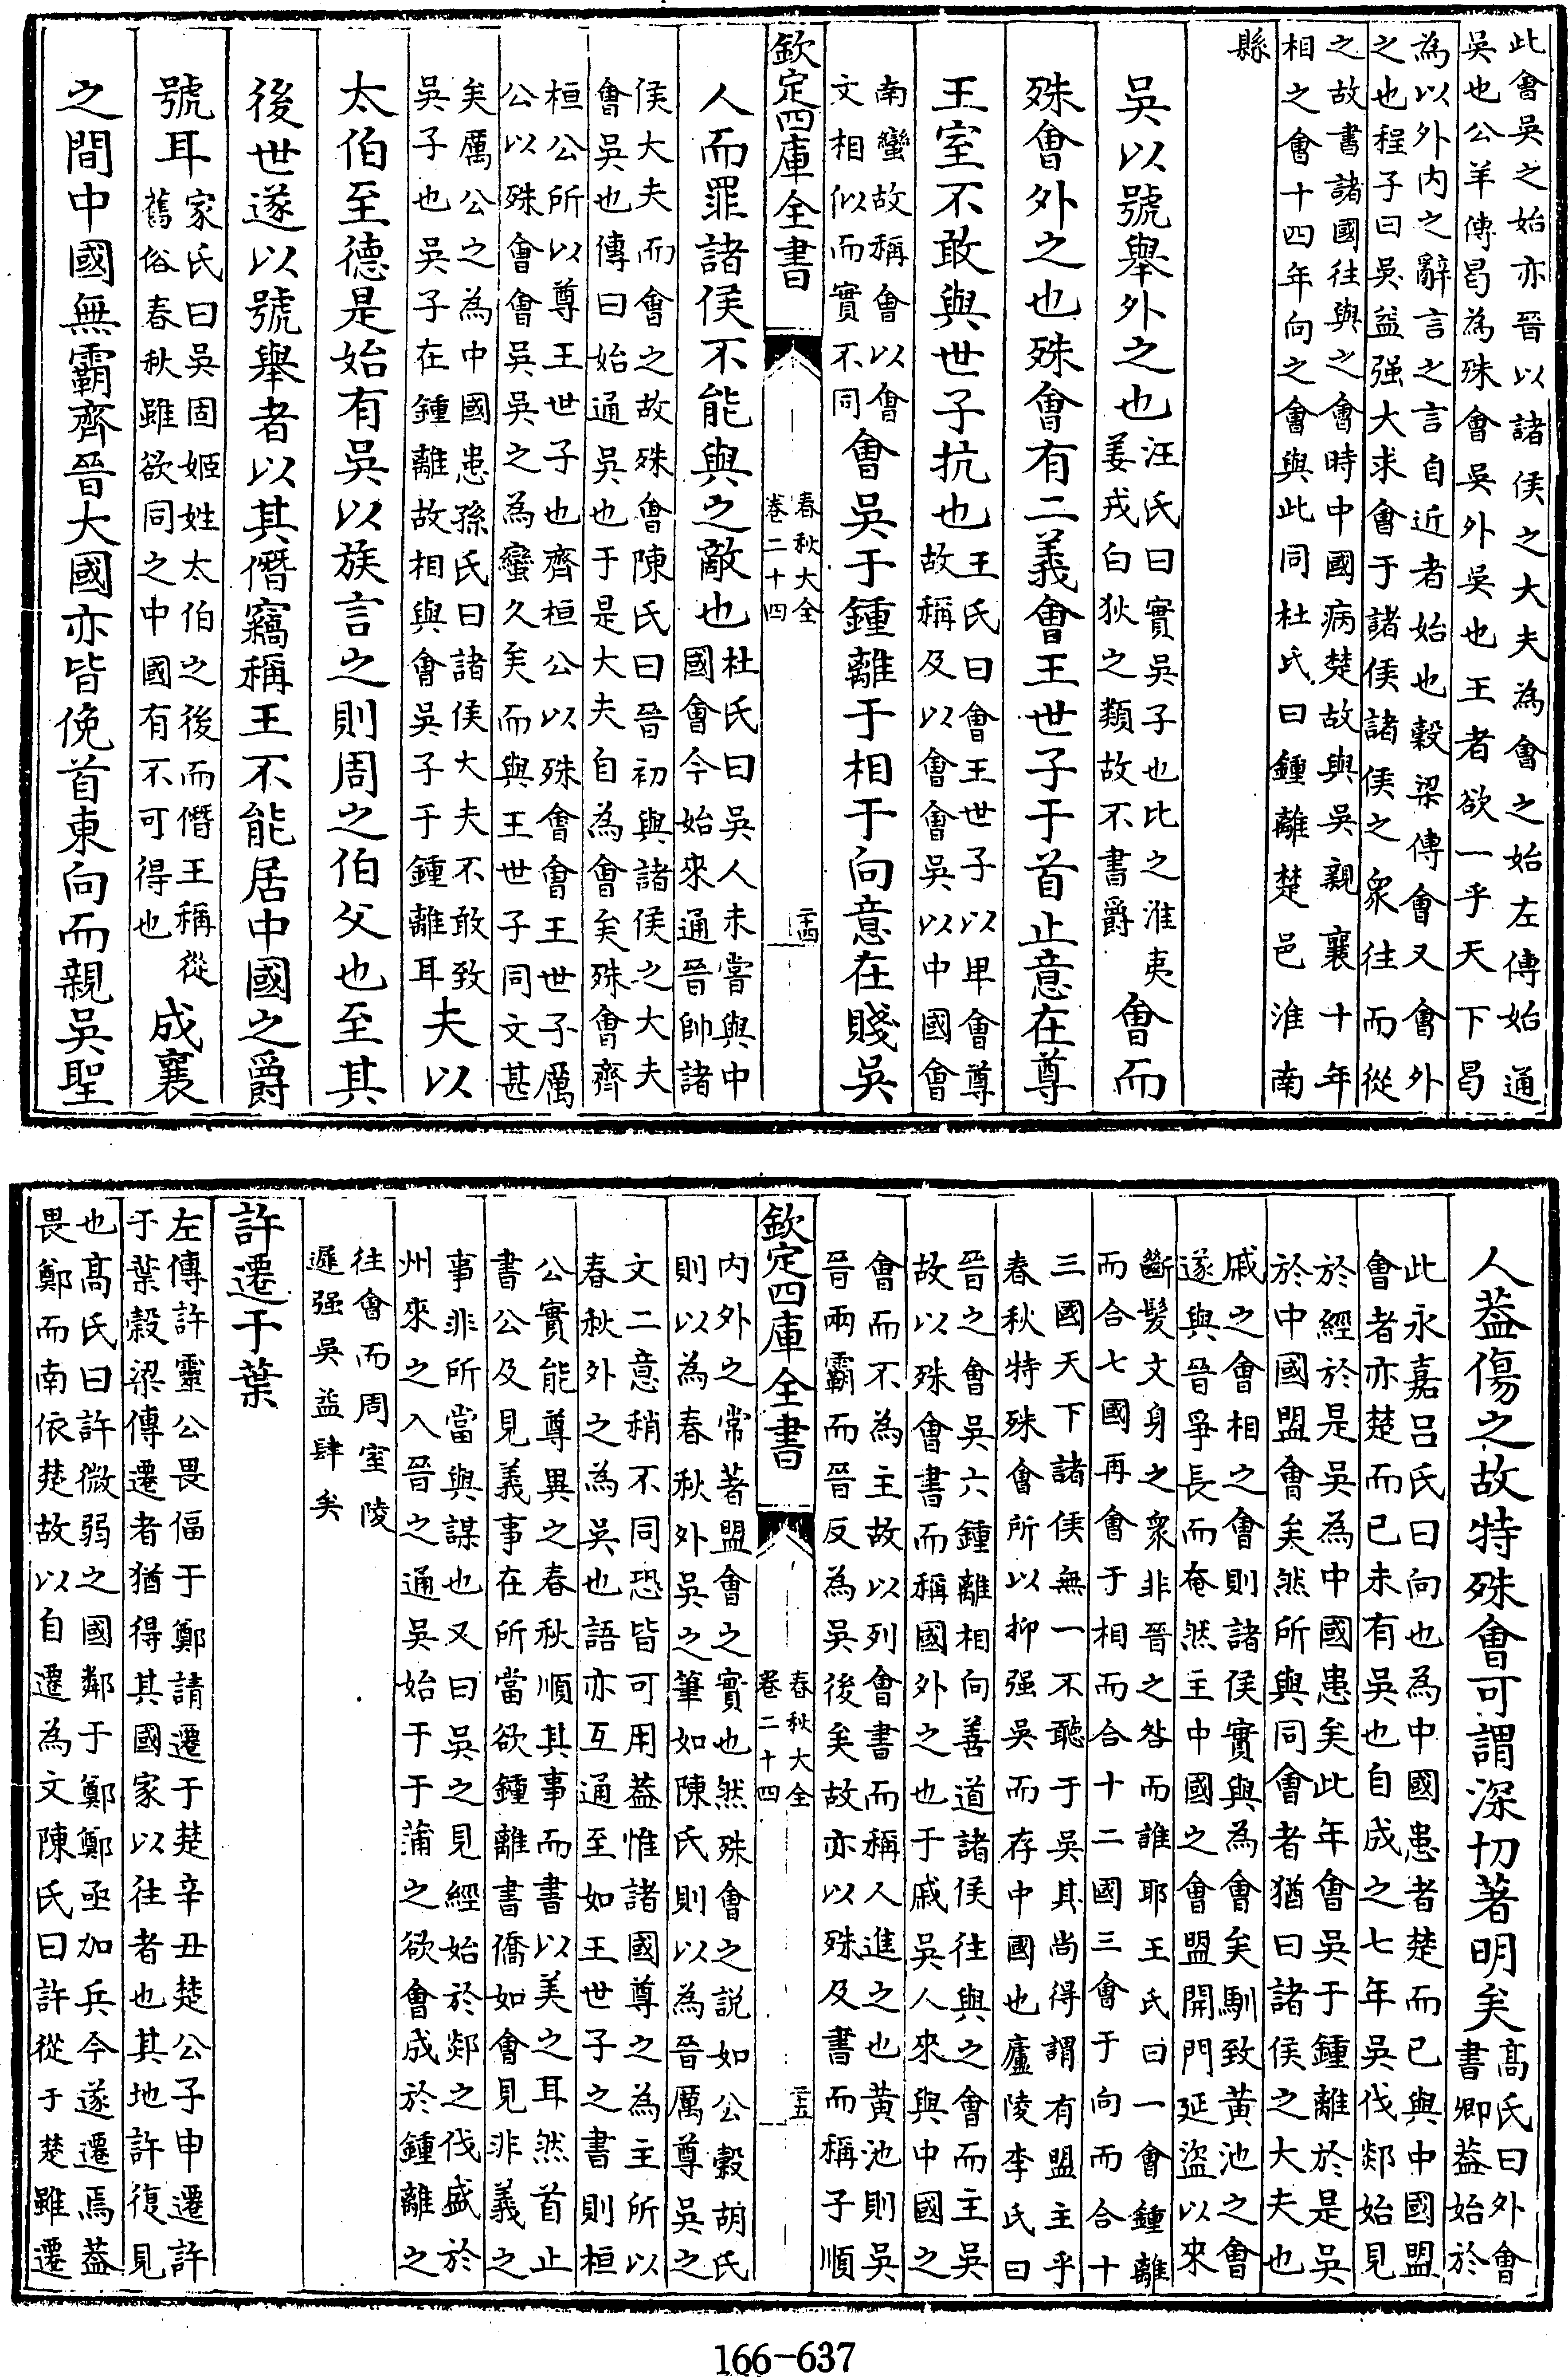 此會吳之始亦晉以諸侯之大夫為會之始左傳始通
吳也公羊傳曷為殊會吳外吳也王者欲一乎天下曷
為以外内之辭言之言自近者始也穀梁傳會又會外
之也程子曰吳益强大求會于諸侯諸侯之衆往而從
之故書諸國往與之會時中國病楚故與吳親襄十年
相之會十四年向之會與此同杜氏曰鍾離楚邑淮南
縣
吳以號舉外之也
汪氏曰實吳子也比之淮夷
姜戎白狄之類故不書爵
會而
殊會外之也殊會有二義會王世子于首止意在尊
王室不敢與世子抗也
王氏曰會王世子以卑會尊
故稱及以會會吳以中國會
南蠻故稱會以會
文相似而實不同
會吳于鍾離于相于向意在賤吳
欽定四庫全書
春秋大全
卷二十四
二十四
人而罪諸侯不能與之敵也
杜氏曰吳人未嘗與中
國會今始來通晉帥諸
侯大夫而會之故殊會陳氏曰晉初與諸侯之大夫
會吳也傳曰始通吳也于是大夫自為會矣殊會齊
桓公所以尊王世子也齊桓公以殊會會王世子厲
公以殊會會吳吳之為蠻久矣而與王世子同文甚
矣厲公之為中國患孫氏曰諸侯大夫不敢致
吳子也吳子在鍾離故相與會吳子于鍾離耳
夫以
太伯至德是始有吳以族言之則周之伯父也至其
後世遂以號舉者以其僭竊稱王不能居中國之爵
號耳
家氏曰吳固姬姓太伯之後而僭王稱從
舊俗春秋雖欲同之中國有不可得也
成襄
之間中國無霸齊晉大國亦皆俛首東向而親吳聖
人葢傷之故特殊會可謂深切著明矣
髙氏曰外會
書卿葢始於
此永嘉吕氏曰向也為中國患者楚而已與中國盟
會者亦楚而已未有吳也自成之七年吳伐郯始見
於經於是吳為中國患矣此年會吳于鍾離於是吳
於中國盟會矣然所與同會者猶曰諸侯之大夫也
戚之會相之會則諸侯實與為會矣馴致黄池之會
遂與晉爭長而奄然主中國之會盟開門延盜以來
斷髮文身之衆非晉之咎而誰耶王氏曰一會鍾離
而合七國再會于相而合十二國三會于向而合十
三國天下諸侯無一不聽于吳其尚得謂有盟主乎
春秋特殊會所以抑强吳而存中國也廬陵李氏曰
晉之會吳六鍾離相向善道諸侯往與之會而主吳
故以殊會書而稱國外之也于戚吳人來與中國之
會而不為主故以列會書而稱人進之也黄池則吳
晉兩霸而晉反為吳後矣故亦以殊及書而稱子順
欽定四庫全書
春秋大全
卷二十四
二十五
内外之常著盟會之實也然殊會之説如公穀胡氏
則以為春秋外吳之筆如陳氏則以為晉厲尊吳之
文二意稍不同恐皆可用葢惟諸國尊之為主所以
春秋外之為吳也語亦互通至如王世子之書則桓
公實能尊異之春秋順其事而書以美之耳然首止
書公及見義事在所當欲鍾離書僑如會見非義之
事非所當與謀也又曰吳之見經始於郯之伐盛於
州來之入晉之通吳始于于蒲之欲會成於鍾離之
往會而周室陵
遲强吳益肆矣
許遷于葉
左傳許靈公畏偪于鄭請遷于楚辛丑楚公子申遷許
于葉穀梁傳遷者猶得其國家以往者也其地許復見
也髙氏曰許微弱之國鄰于鄭鄭亟加兵今遂遷焉葢
畏鄭而南依楚故以自遷為文陳氏曰許從于楚雖遷
166-637